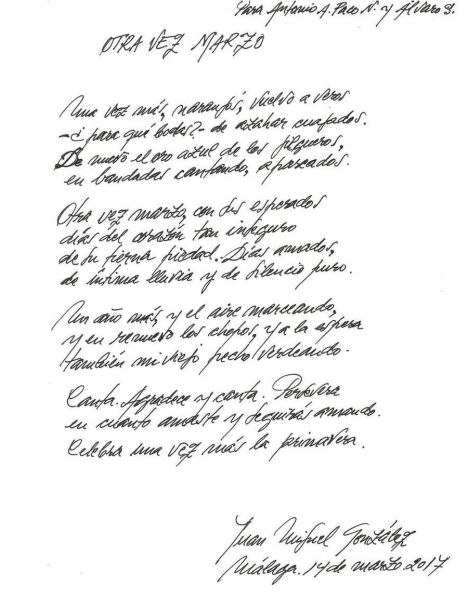 Para Antonio A. Paco N. y Álvaro S.
OTRA VEZ MARZO
Una vez más, naranjos, vuelvo a veros
-¿para qué bodas?- de azahar cuajados.
De nuevo el oro azul de los jilgueros,
en bandadas cantando, apareados.
Otra vez marzo, con sus esperados
días del corazón tan inseguro
de su tierna piedad. Días amados,
de íntima lluvia y de silencio puro.
Un año más, y el aire marceando,
y en renuevo los chopos, y a la espera
también mi viejo pecho verdeando.
Canta. Agradece y canta. Persevera
en cuanto amaste y seguirás amando.
Celebra una vez más la primavera.
Juan Miguel González
Málaga. 14 de marzo. 2017